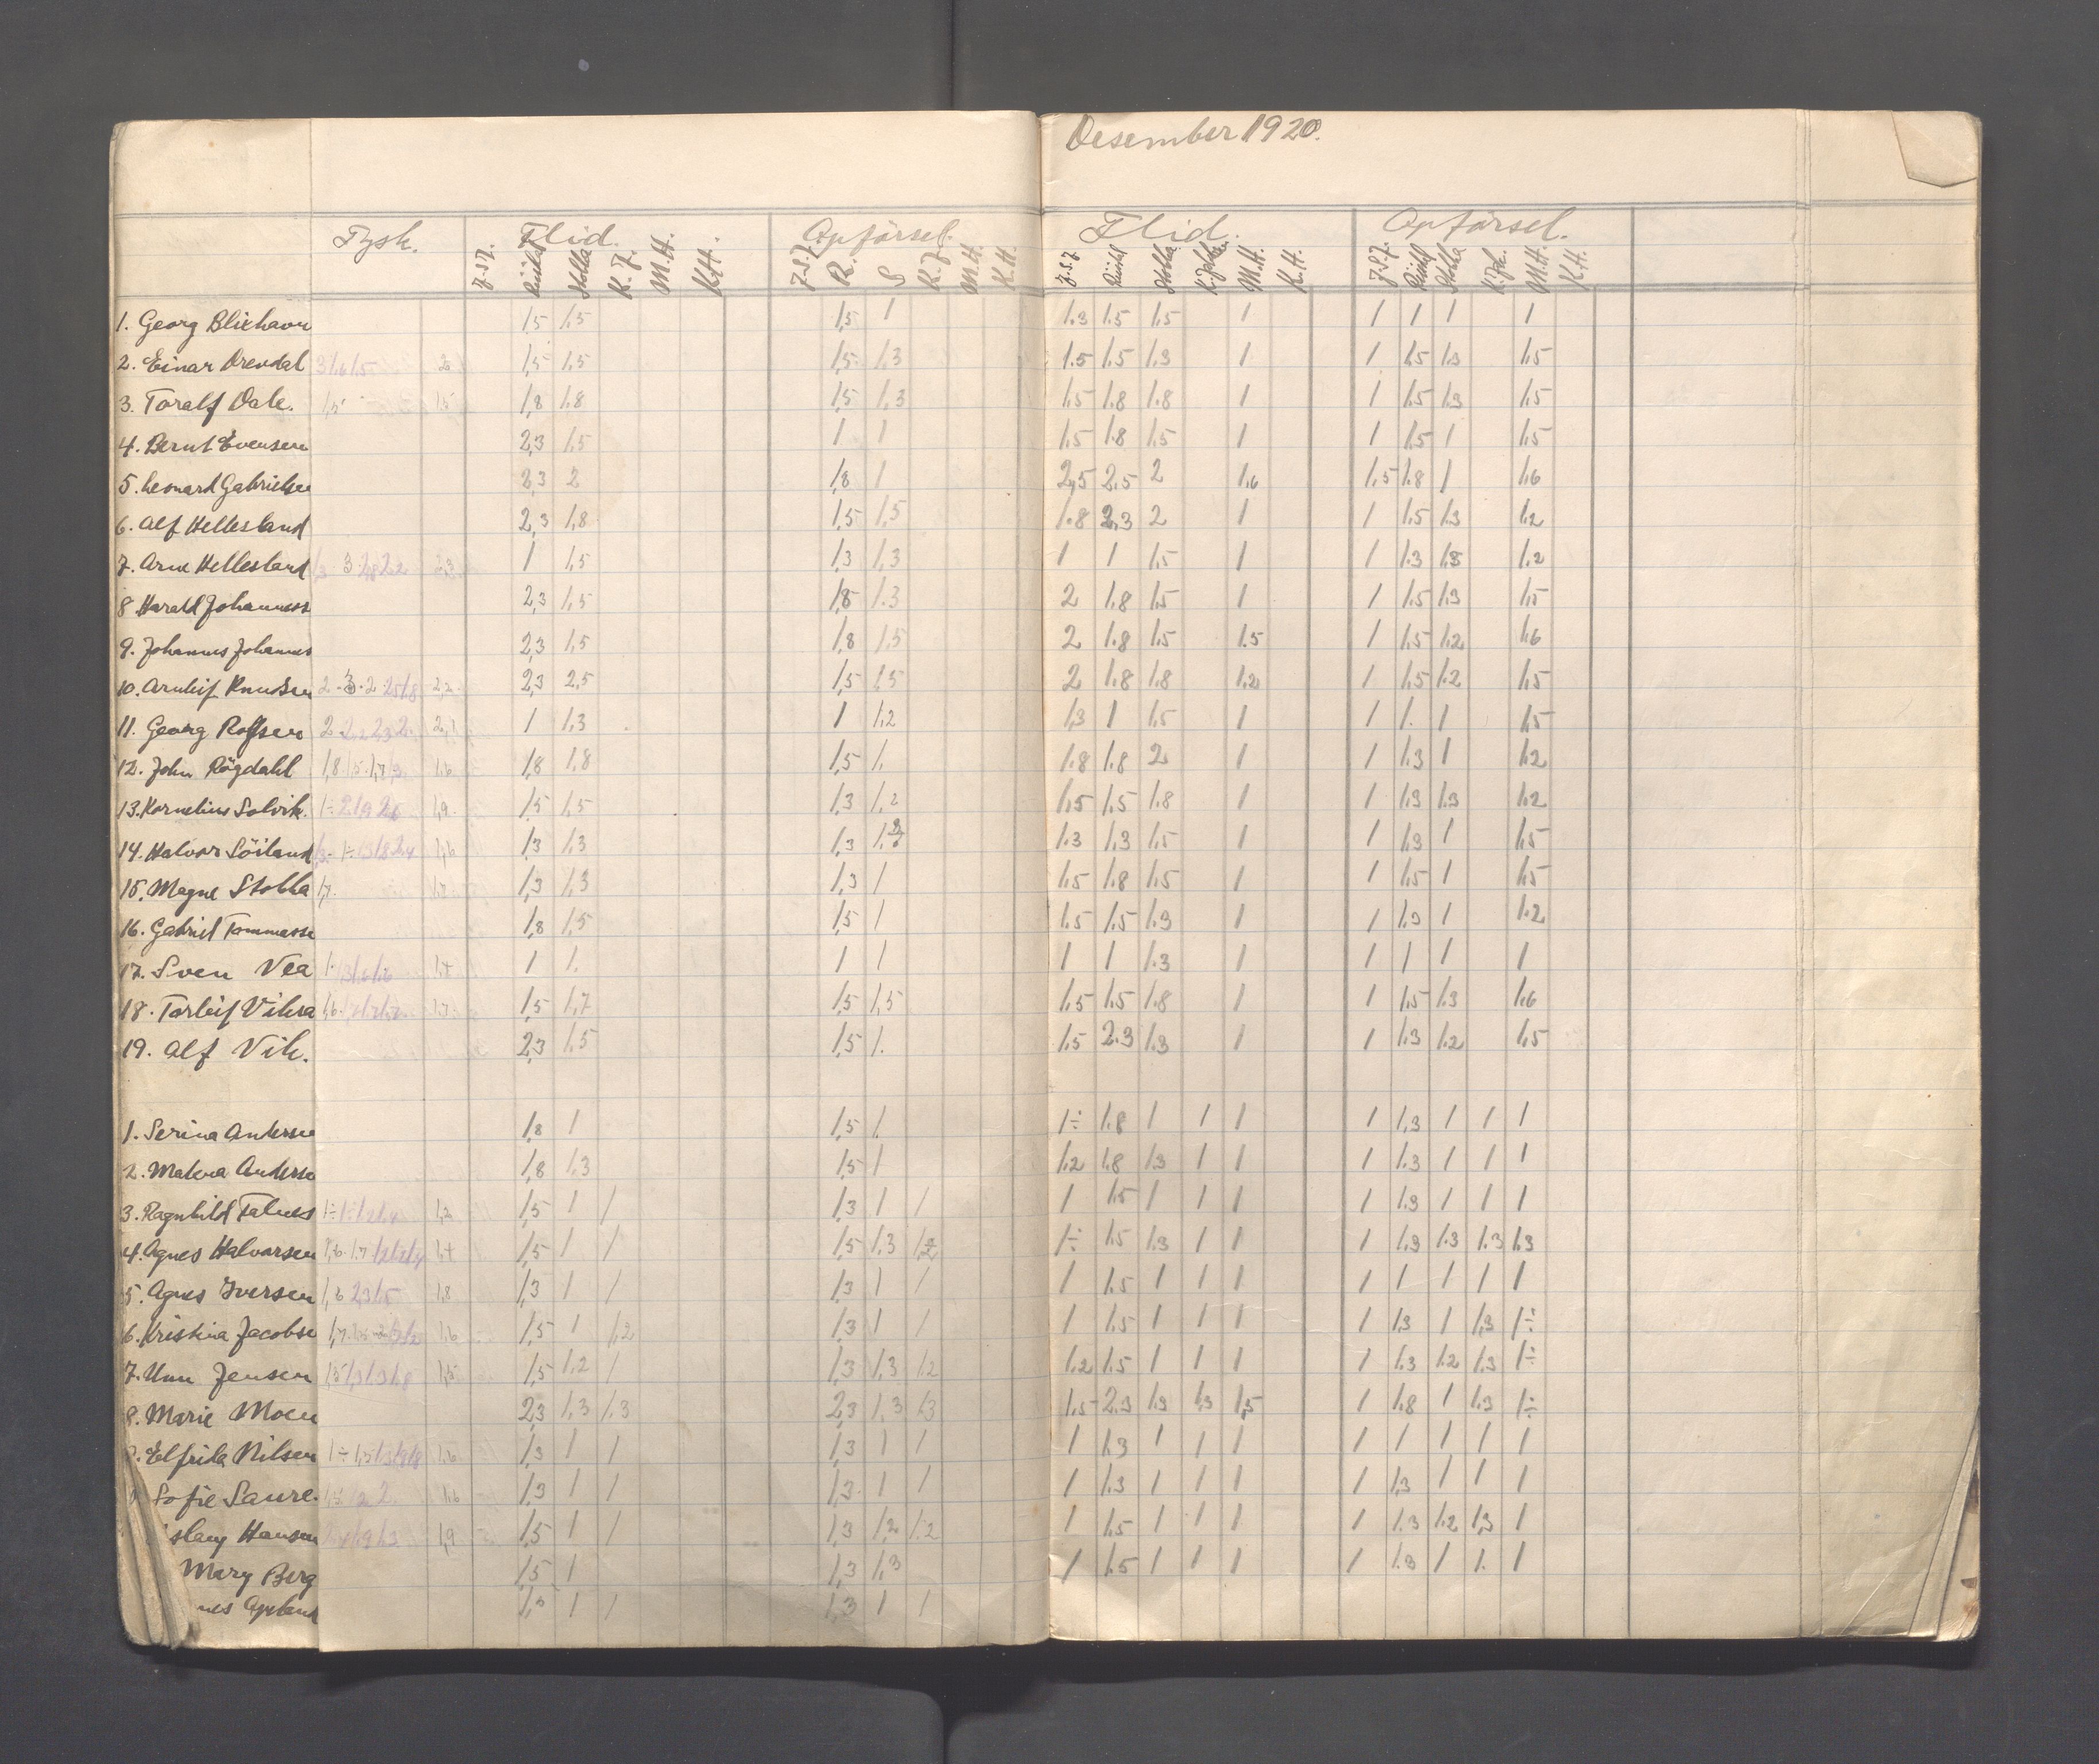 Desember 1920.
Tysk. Flid. Opförsel. Flid. Opförsel.
J.S.J. Stobba K. J. M.H. K.H. J.S.J. R. S K.J. M.H. K.H. J.S.J. Stobba M.H. K.H. J.S.J. Stobba M.H. K.H.
1. Georg Blixhavn 1,5 1,5 1,5 1 1.3 1.5 1.5 1 1 1 1 1
2. Einar 2 1,5 1,5 1,5 1,3 1.5 1.5 1.3 1 1 1.5 1.3 1.5
3. Toralf Dale. 1,5 1,5 1,8 1.8 1,5 1,3 1.5 1.8 1.8 1 1 1.5 1.3 1.5
4. Bernt Evensen 2,3 1,5 1 1 1.5 1.8 1.5 1 1 1.5 1 1.5
5. Leonard Gabrielsen 2,3 2 1,8 1 2,5 2.5 2 1.6 1.5 1.8 1 1.6
6. Alf Hellesland 2,3 1,8 1,5 1,5 1.8 2.3 2 1 1 1.5 1.3 1.2
7. Arne Hellesland 1 1,5 1,3 1,3 1 1 1.5 1 1 1.3 1.3 1.2
8 Harald Johanness 2,3 1,5 1,8 1.3 2 1.8 1.5 1 1 1.5 1.3 1.5
9. Johannes Johannes 2,3 1,5 1,8 1,5 2 1.8 1.5 1.5 1 1.5 1.2 1.6
10. Arnleif Knudsen 2,3 2,5 1,5 1,5 2 1.8 1.8 1.2 1 1.5 1.2 1.5
11. Georg Rolfsen 1 1,3 1 1,2 1,3 1 1.5 1 1 1. 1 1.5
12. John Rögdahl 1,8 1,8 1,5 1. 1.8 1.8 2 1 1 1.3 1 1.2
13. Kornelius Solvik. 1,9 1,5 1,5 1,3 1,2 1.5 1.5 1.8 1 1 1.3 1.3 1.2
14. Halvor Söiland 1,6 1,3 1,3 1,3 1.3 1.3 1.5 1 1 1.3 1 1.5
15. Magne Stobba 1,7. 1,7 1,3 1,3 1,3 1 1.5 1.8 1.5 1 1 1.5 1 1.5
16. Gabriel Tommasse 1,8 1,5 1,5 1 1.5 1.5 1.3 1 1 1.3 1 1.2
17. Sven Vea 1 1. 1 1 1 1 1.3 1 1 1 1 1
18. Torleif Vikra 1,5 1,7 1,5 1,5 1.5 1.5 1.8 1 1 1.5 1.3 1.6
19. Alf Vik. 2,3 1,5 1,5 1. 1.5 2.3 1.3 1 1 1.3 1.2 1.5
1. Serina Andersen 1,8 1 1,5 1. 1÷ 1.8 1 1 1 1 1,3 1 1 1
2. Andersen 1,8 1,3 1,5 1 1.2 1.8 1.3 1 1 1 1.3 1 1 1
3. Ragnhild Falnes 1,2 1,5 1 1 1,3 1 1 1 1.5 1 1 1 1 1.3 1 1 1
4. Agnes Halvorsen 1,4 1,5 1 1 1,5 1,3 1÷ 1.5 1.3 1 1 1 1.3 1.3 1.3 1.3
5. Agnes Iversen 1,8 1,3 1 1 1,3 1 1 1 1.5 1 1 1 1 1 1 1 1
6. Kristina Jacobse 1,6 1,5 1 1,2 1,3 1 1 1 1.5 1 1 1 1 1.3 1 1,3 1÷
7. Unn Jensen 1,5 1,5 1,2 1 1,3 1,3 1,2 1.2 1.5 1 1 1 1 1.3 1.2 1.3 1÷
8. Marie Moen 2,3 1,3 1,3 2,3 1,3 1,3 1.5 2.3 1.3 1,3 1,5 1 1.8 1 1.3 1÷
9. Elfrida Nilsen 1,6 1,3 1 1 1,3 1 1 1 1.3 1 1 1 1 1 1 1 1
Sofie Saure. 1,6 1,3 1 1 1,3 1 1 1 1.3 1 1 1 1 1,3 1 1 1
slaug Hansen 1,9 1,5 1 1 1,3 1,2 1,2 1 1.5 1 1 1 1 1.3 1.2 1,3 1
Mary Berg 1,5 1 1,3 1,3 1 1.5 1 1 1 1 1.3 1 1. 1
nes 1 1 1,3 1 1